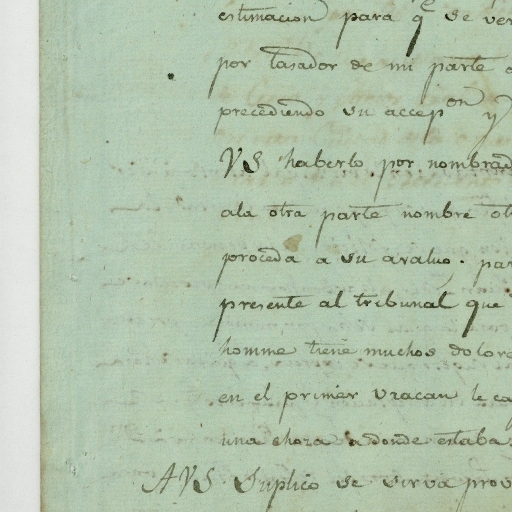 estimacion para q̃ se ver
por tasador de mi parte
precediendo su accep.on y
VS haberlo por nombrad
ala otra parte nombre ot
proceda a su avaluo. par
presente al tribunal que
homme tiene muchos dolore
en el primer vracan le ca
una choza a donde estaba
AVS Suplico se sirva prov